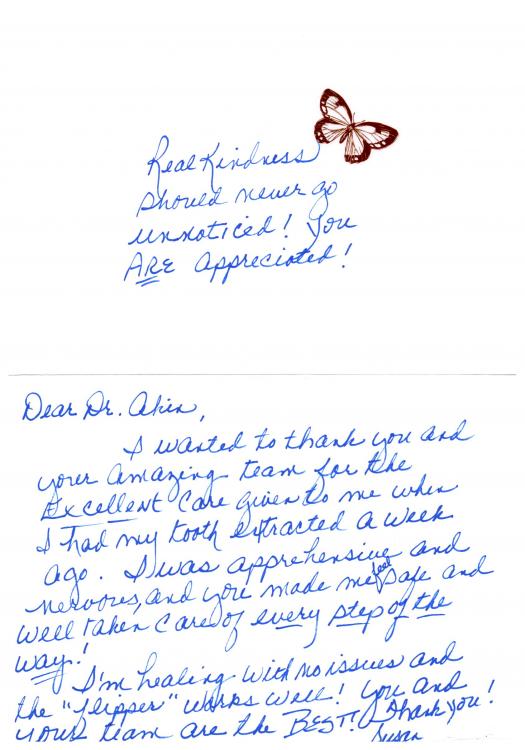 Real Kindness
should never go
unnoticed! You
ARE appreciated!
Dear Dr. Akin,
I wanted to thank you and
your amazing team for the
Excellent care given to me when
I had my tooth extracted a week
ago. I was apprehensive and
nervous, and you made me feel safe and
well taken care of every step of the
way!
I'm healing with no issues and
the "flipper" works well! You and
your team are the BEST! Thank you!
Susan